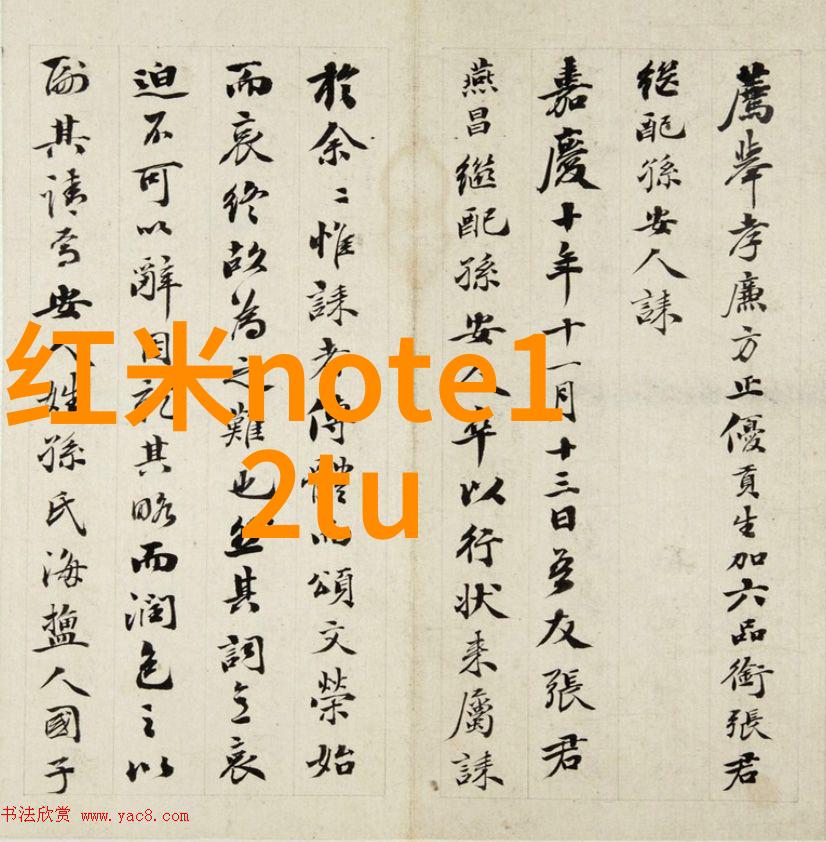 薦舉孝廉方正優貢生加六品銜張君
继配孫安人誄
嘉慶十年十一月十三日吾友張君
燕昌继配孫安人卒以行状来屬誄
於余〻惟誄者傳體而頌文榮始
而哀终故為之難也並其詞立哀
迫不可以辭因記其略而潤色之以
副其請焉安人姓孫氏海鹽人國子
红米note1
2tu
书法欣赏 www.yac8.com